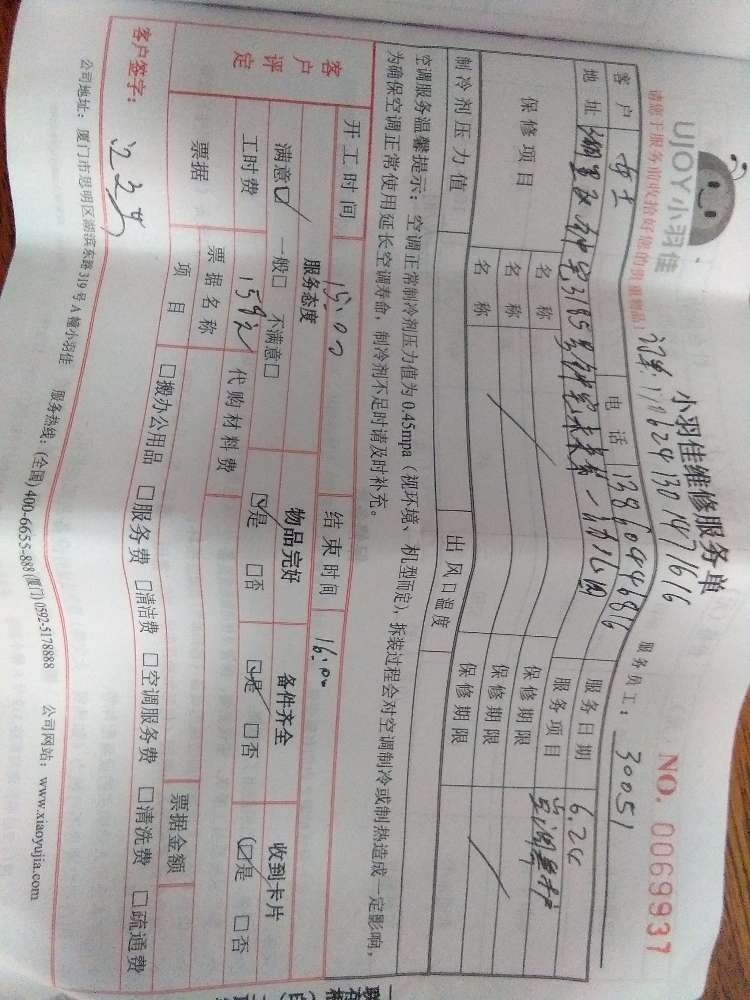 UJOY小羽佳
请您于服务前收拾好您的贵重物品!
小羽佳维修服务单
NO. 0069937
服务员工: 30051
客户 女士 电话 服务日期 6.24
地址 服务项目 空调维护
保修项目 名称 保修期限
名称 保修期限
名称 保修期限
制冷剂压力值 出风口温度
空调服务温馨提示: 空调正常制冷剂压力值为0.45mpa (视环境、机型而定), 拆装过程会对空调制冷或制热造成一定影响,
为确保空调正常使用延长空调寿命, 制冷剂不足时请及时补充。
开工时间 15:00 结束时间 16:00
客户评定 服务态度 物品完好 备件齐全 收到卡片
满意☑ 一般□ 不满意□ ☑是 □否 ☑是 □否 ☑是 □否
工时费 159元 代购材料费
票据 票据名称 票据金额
项目 □搬办公用品 □服务费 □清洁费 □空调服务费 □清洗费 □疏通费
客户签字:
公司地址: 厦门市思明区湖滨东路319号A幢小羽佳 服务热线: (全国) 400-6655-888 (厦门) 0592-5178888 公司网站: www.xiaoyujia.com